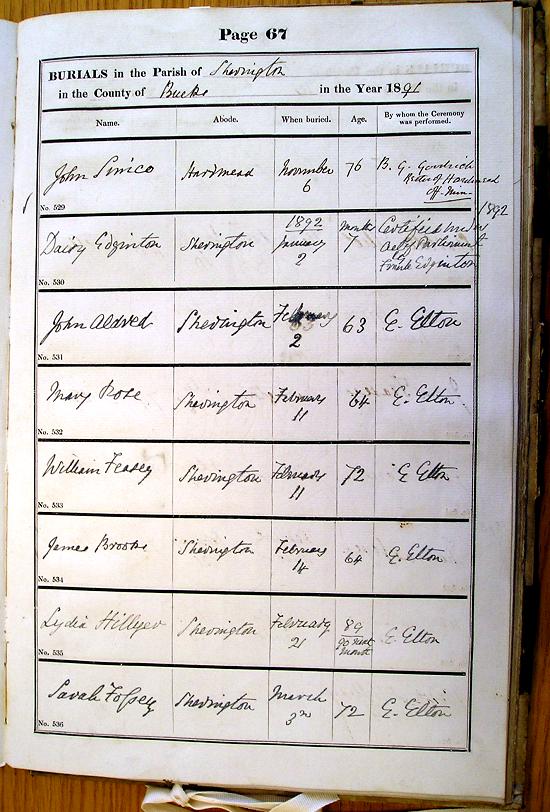 Page 67
BURIALS in the Parish of Sherington
in the County of Bucks in the Year 1891
Name. Abode. When buried. Age. By whom the Ceremony was performed.
John Simco Hardmead November 6 76 B. G. Goodrich
Rector of Hardmead
Off. Min.
No. 529
1892
Daisy Edginton Sherington 1892 January 2 months 7 Certified under
Act of Parliament
Edginton
No. 530
John Aldred Sherington February 2 63 E. Elton
No. 531
Mary Rose Sherington February 11 64 E. Elton
No. 532
William Feasey Sherington February 11 72 E Elton
No. 533
James Brooks Sherington February 14 64 E. Elton
No. 534
Lydia Hillyer Sherington February 21 89 E Elton
90 next
month
No. 535
Sarah Fossey Sherington March 3rd 72 E. Elton
No. 536